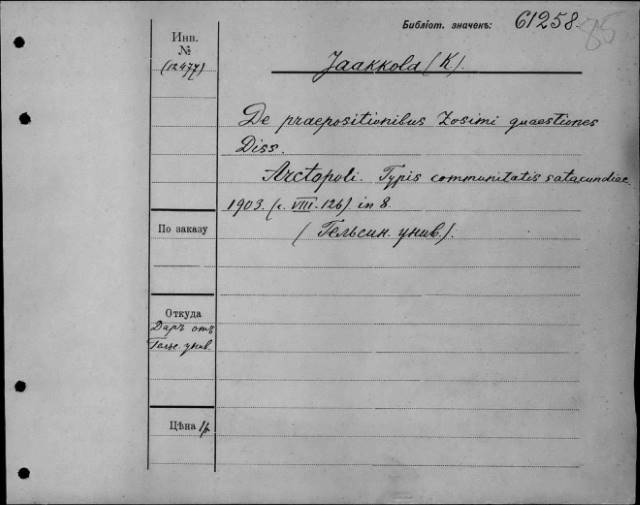 Библіот. значекъ: 61258
85
Инв.
№
(12477)
Jaakkola (K).
De praepositionibus Zosimi quaestiones
Diss.
Arctopoli. Typis communitatis satacundiae.
1903. (с. VIII. 126) in 8.
(Гельсин. унив.).
По заказу
Откуда
Даръ отъ
Гельс. унив.
Цѣна 1р